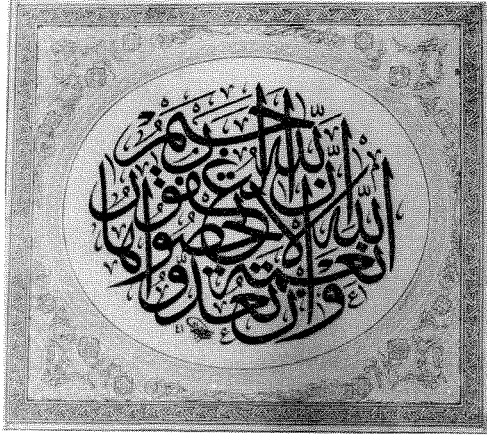 وَإِن تَعُدُّوا نِعْمَةَ اللَّهِ لَا تُحْصُوهَا إِنَّ اللَّهَ لَغَفُورٌ رَحِيمٌ